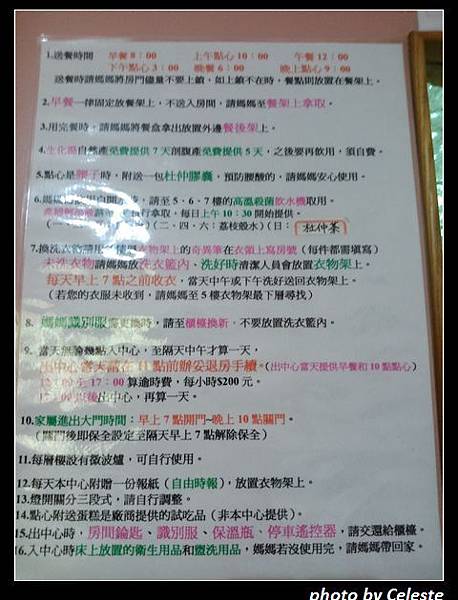 1.送餐時間 早餐 8：00 上午點心 10：00 午餐 12：00
下午點心 3：00 晚餐 6：00 晚上點心 9：00
送餐時請媽媽將房門儘量不要上鎖，如上鎖不在時，餐點則放置在餐架上。
2.早餐一律固定放餐架上，不送入房間，請媽媽至餐架上拿取。
3.用完餐時，請媽媽將餐盒拿出放置外邊餐後架上。
4.生化湯自然產免費提供 7 天剖腹產免費提供 5 天，之後要再飲用，須自費。
5.點心是腰子時，附送一包杜仲膠囊，預防腰酸的。請媽媽安心使用。
請至 5、6、7 樓的高溫殺菌飲水機取用。
行拿取，每日上午 10：30 開始提供。
（二、四、六：荔枝殼水）（日： 杜仲茶
7.換洗衣物請用 衣物架上的奇異筆在衣領上寫房號（每件都需填寫）
未洗衣物請媽媽放洗衣籃內、洗好時清潔人員會放置衣物架上。
每天早上 7 點之前收衣，當天中午或下午洗好送回衣物架上。
（若您的衣服未收到，請媽媽至 5 樓衣物架最下層尋找）
8. 媽媽識別服需更換時，請至櫃檯換新，不要放置洗衣籃內。
9. 當天無論幾點入中心，至隔天中午才算一天，
出中心當天請在 11 點前辦妥退房手續。（出中心當天提供早餐和 10 點點心）
12：00 至 17：00 算逾時費，每小時$200 元。
17：00 以後出中心，再算一天。
10.家屬進出大門時間：早上 7 點開門~晚上 10 點關門。
（關門後即保全設定至隔天早上 7 點解除保全）
11.每層樓設有微波爐，可自行使用。
12.每天本中心附贈一份報紙（自由時報），放置衣物架上。
13.燈開關分三段式，請自行調整。
14.點心附送蛋糕是廠商提供的試吃品（非本中心提供）。
15.出中心時，房間鑰匙、識別服、保溫瓶、停車遙控器，請交還給櫃檯。
16.入中心時床上放置的衛生用品和盥洗用品，媽媽若沒使用完，請媽媽帶回家。
photo by Celeste